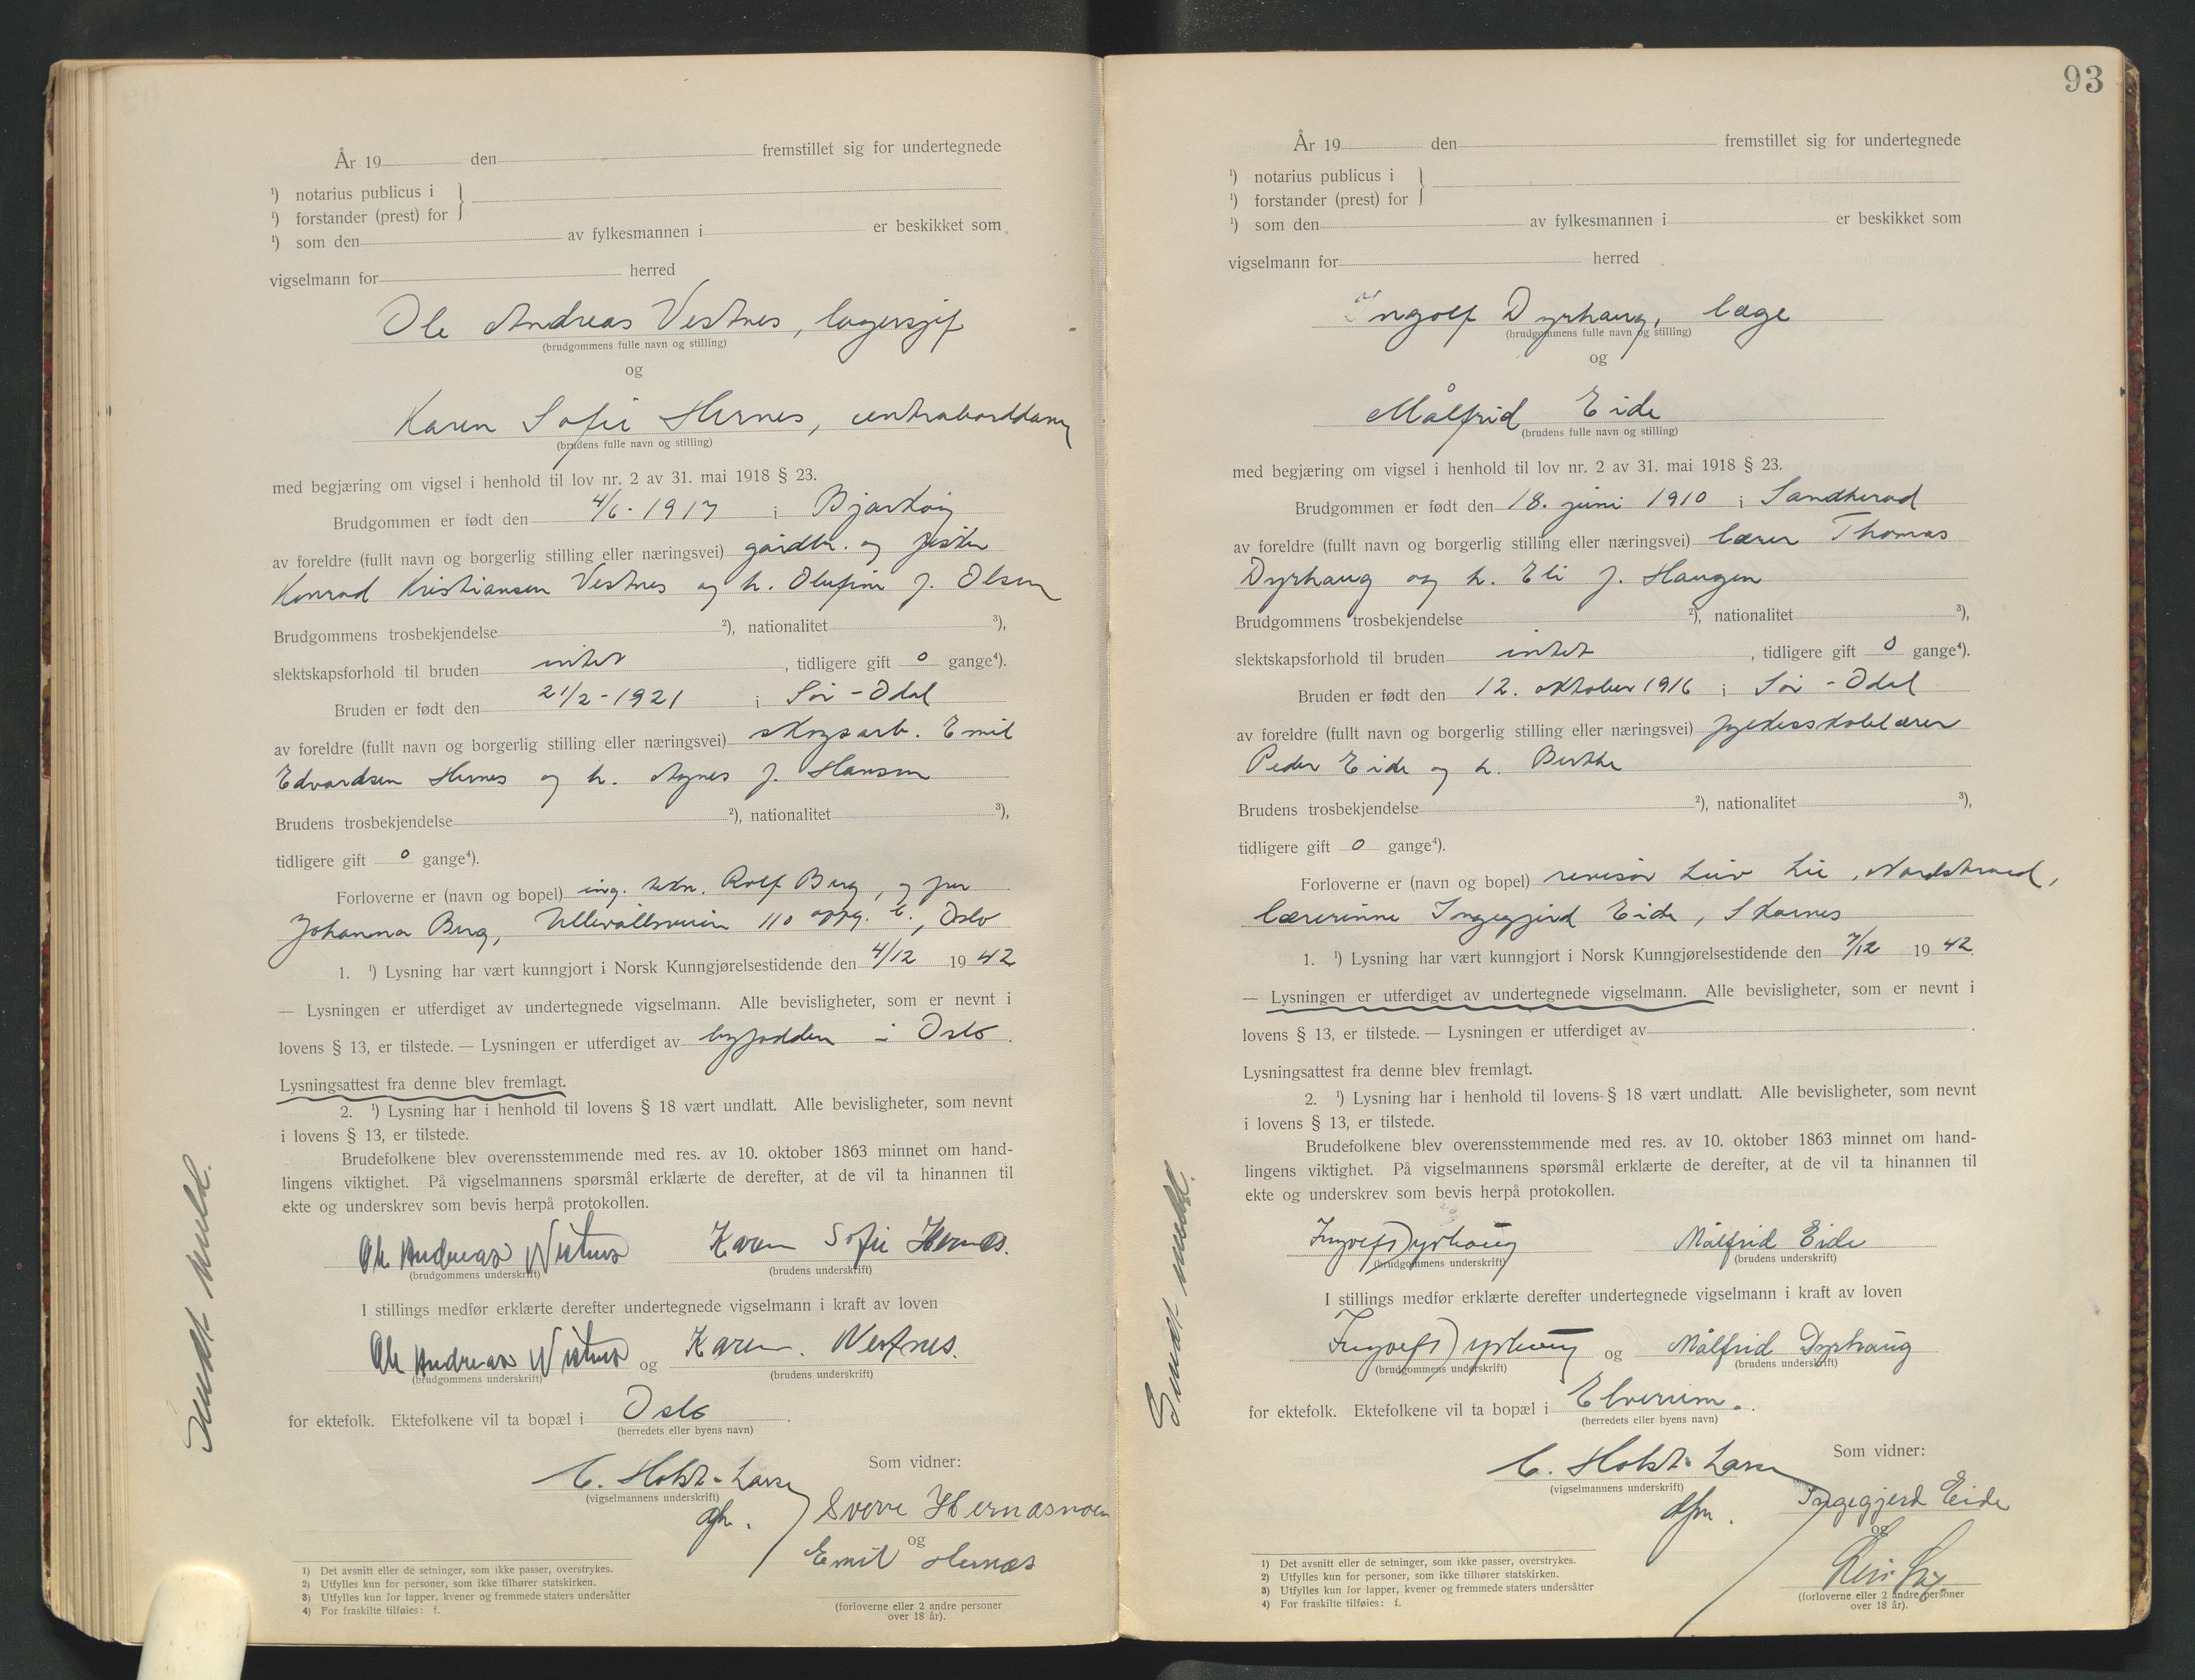 År 19 den fremstillet sig for undertegnede
¹) notarius publicus i
¹) forstander (prest) for
¹) som den av fylkesmannen i er beskikket som
vigselmann for herred
Ole Andreas Vestnes, lagersjef
(brudgommens fulle navn og stilling)
og
Karen Sofie Hernes, centraborddame
(brudens fulle navn og stilling)
med begjæring om vigsel i henhold til lov nr. 2 av 31. mai 1918 § 23.
Brudgommen er født den 4/6 - 1917 i Bjarkøy
av foreldre (fullt navn og borgerlig stilling eller næringsvei) gårdbr. og fisker
Konrad Kristiansen Vestnes og h. Olufine f. Olsen
Brudgommens trosbekjendelse ²), nationalitet ³),
slektskapsforhold til bruden intet , tidligere gift 0 gange⁴).
Bruden er født den 21/2 - 1921 i Sør-Odal
av foreldre (fullt navn og borgerlig stilling eller næringsvei) skogsarb. Emil
Edvardsen Hernes og h. Agnes f. Hansen
Brudens trosbekjendelse ²), nationalitet ³),
tidligere gift 0 gange⁴).
Forloverne er (navn og bopel) ing. Rolf Berg, og fru
Johanna Berg, Ullevålsveien 110 oppg. , Oslo
1. ¹) Lysning har vært kunngjort i Norsk Kunngjørelsestidende den 4/12 19 42
— Lysningen er utferdiget av undertegnede vigselmann. Alle bevisligheter, som er nevnt i
lovens § 13, er tilstede. — Lysningen er utferdiget av byfodden i Oslo.
Lysningsattest fra denne blev fremlagt.
2. ¹) Lysning har i henhold til lovens § 18 vært undlatt. Alle bevisligheter, som nevnt
i lovens § 13, er tilstede.
Brudefolkene blev overensstemmende med res. av 10. oktober 1863 minnet om hand-
lingens viktighet. På vigselmannens spørsmål erklærte de derefter, at de vil ta hinannen til
ekte og underskrev som bevis herpå protokollen.
Ole Andreas Vestnes Karen Sofie Hernes.
(brudgommens underskrift) (brudens underskrift)
I stillings medfør erklærte derefter undertegnede vigselmann i kraft av loven
Ole Andreas Vestnes og Karen. Vestnes.
(brudgommens underskrift) (brudens underskrift)
for ektefolk. Ektefolkene vil ta bopæl i Oslo.
(herredets eller byens navn)
Som vidner:
C. Holst-Larsen
(vigselmannens underskrift)
dfm. Sverre Hernæsmoen
og
Emil Hernæs
(forloverne eller 2 andre personer
over 18 år).
1) Det avsnitt eller de setninger, som ikke passer, overstrykes.
2) Utfylles kun for personer, som ikke tilhører statskirken.
3) Utfylles kun for lapper, kvener og fremmede staters undersåtter
4) For fraskilte tilføies: f.
Sendt meld.
93
År 19 den fremstillet sig for undertegnede
¹) notarius publicus i
¹) forstander (prest) for
¹) som den av fylkesmannen i er beskikket som
vigselmann for herred
Ingolf Dyrhaug, læge
(brudgommens fulle navn og stilling)
og
Målfrid Eide
(brudens fulle navn og stilling)
med begjæring om vigsel i henhold til lov nr. 2 av 31. mai 1918 § 23.
Brudgommen er født den 18. juni 1910 i Sandherad
av foreldre (fullt navn og borgerlig stilling eller næringsvei) lærer Thomas
Dyrhaug og h. Eli f. Haugen
Brudgommens trosbekjendelse ²), nationalitet ³),
slektskapsforhold til bruden intet , tidligere gift 0 gange⁴).
Bruden er født den 12. oktober 1916 i Sør-Odal
av foreldre (fullt navn og borgerlig stilling eller næringsvei) fylkesskolelærer
Peder Eide og h. Berthe
Brudens trosbekjendelse ²), nationalitet ³),
tidligere gift 0 gange⁴).
Forloverne er (navn og bopel) revisor Leiv Lie, Nordstrand,
lærerinne Ingegjerd Eide, Skarnes
1. ¹) Lysning har vært kunngjort i Norsk Kunngjørelsestidende den 7/12 19 42.
— Lysningen er utferdiget av undertegnede vigselmann. Alle bevisligheter, som er nevnt i
lovens § 13, er tilstede. — Lysningen er utferdiget av .
Lysningsattest fra denne blev fremlagt.
2. ¹) Lysning har i henhold til lovens § 18 vært undlatt. Alle bevisligheter, som nevnt
i lovens § 13, er tilstede.
Brudefolkene blev overensstemmende med res. av 10. oktober 1863 minnet om hand-
lingens viktighet. På vigselmannens spørsmål erklærte de derefter, at de vil ta hinannen til
ekte og underskrev som bevis herpå protokollen.
Ingolf Dyrhaug Målfrid Eide
(brudgommens underskrift) (brudens underskrift)
I stillings medfør erklærte derefter undertegnede vigselmann i kraft av loven
Ingolf Dyrhaug og Målfrid Dyrhaug
(brudgommens underskrift) (brudens underskrift)
for ektefolk. Ektefolkene vil ta bopæl i Elverum.
(herredets eller byens navn)
Som vidner:
C. Holst-Larsen
(vigselmannens underskrift)
dfm. Ingegjerd Eide
og
Leiv Lie
(forloverne eller 2 andre personer
over 18 år).
1) Det avsnitt eller de setninger, som ikke passer, overstrykes.
2) Utfylles kun for personer, som ikke tilhører statskirken.
3) Utfylles kun for lapper, kvener og fremmede staters undersåtter
4) For fraskilte tilføies: f.
Sendt meld.